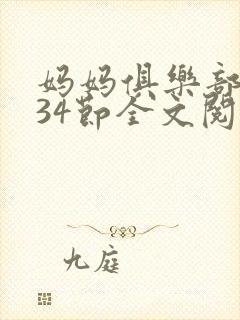 妈妈俱樂部
34節全文閱
九庭